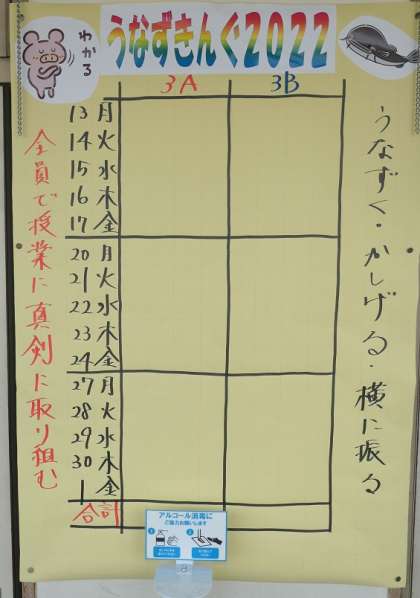 わかる
うなずきんぐ2022
3A 3B
13 月
14 火
15 水
16 木
17 金
20 月
21 火
22 水
23 木
24 金
27 月
28 火
29 水
30 木
1 金
合計
うなずく・かしげる・横に振る
全員で授業に真剣に取り組む
アルコール消毒に
ご協力お願いします
1 2